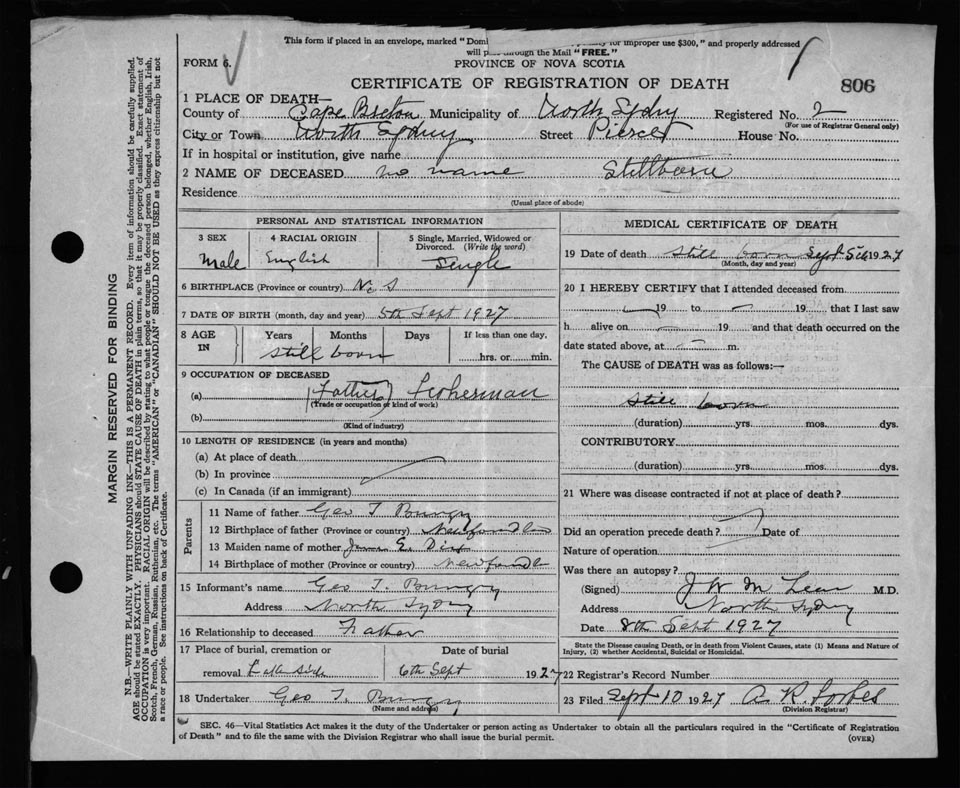 This form if placed in an envelope, marked "Domi for improper use $300," and properly addressed
will p through the Mail "FREE."
FORM 6.
PROVINCE OF NOVA SCOTIA
CERTIFICATE OF REGISTRATION OF DEATH
806
1 PLACE OF DEATH—
County of Cape Breton Municipality of North Sydny Registered No. 2
(For use of Registrar General only)
City or Town North Sydney Street Pierce St House No.
If in hospital or institution, give name
2 NAME OF DECEASED no name Stillborn
Residence
(Usual place of abode)
PERSONAL AND STATISTICAL INFORMATION
3 SEX
Male
4 RACIAL ORIGIN
English
5 Single, Married, Widowed or
Divorced. (Write the word)
Single
6 BIRTHPLACE (Province or country) N. S
7 DATE OF BIRTH (month, day and year) 5th Sept 1927
8 AGE IN Years Months Days If less than one day,
still born hrs. or min.
9 OCCUPATION OF DECEASED
(a) (Father) Fisherman
(Trade or occupation or kind of work)
(b)
(Kind of industry)
10 LENGTH OF RESIDENCE (in years and months)
(a) At place of death
(b) In province
(c) In Canada (if an immigrant)
Parents
11 Name of father Geo T
12 Birthplace of father (Province or country) Newfoundlan
13 Maiden name of mother E.
14 Birthplace of mother (Province or country) Newfoundla
15 Informant's name Geo T.
Address North Sydny
16 Relationship to deceased Father
17 Place of burial, cremation or
removal
Date of burial
6th Sept 1927
18 Undertaker Geo T.
(Name and address)
MEDICAL CERTIFICATE OF DEATH
19 Date of death still born Sept 5th 1927
(Month, day and year)
20 I HEREBY CERTIFY that I attended deceased from
19 to 19 that I last saw
h alive on 19 and that death occurred on the
date stated above, at m.
The CAUSE of DEATH was as follows:—
still born
(duration) yrs. mos. dys.
CONTRIBUTORY
(duration) yrs. mos. dys.
21 Where was disease contracted if not at place of death?
Did an operation precede death? Date of
Nature of operation
Was there an autopsy?
(Signed) J W McLean M.D.
Address North Sydny
Date 8th Sept 1927
State the Disease causing Death, or in death from Violent Causes, state (1) Means and Nature of
Injury, (2) whether Accidental, Suicidal or Homicidal.
22 Registrar's Record Number
23 Filed Sept 10 1927 A. R. Forbes
(Division Registrar)
SEC. 46—Vital Statistics Act makes it the duty of the Undertaker or person acting as Undertaker to obtain all the particulars required in the "Certificate of Registration
of Death" and to file the same with the Division Registrar who shall issue the burial permit.
(OVER)
MARGIN RESERVED FOR BINDING
N.B.—WRITE PLAINLY WITH UNFADING INK—THIS IS A PERMANENT RECORD. Every item of information should be carefully supplied.
AGE should be stated EXACTLY. PHYSICIANS should STATE CAUSE OF DEATH in plain terms, so that it may be properly classified. Exact statement of
OCCUPATION is very important. RACIAL ORIGIN will be described by stating to what people or tongue the deceased person belonged, whether English, Irish,
Scotch, French, German, Russian, Ruthenian, etc. The terms "AMERICAN" or "CANADIAN" SHOULD NOT BE USED as they express citizenship but not
a race or people. See instructions on back of Certificate.